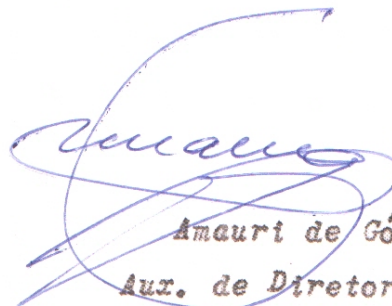 Amauri de Gô
Aux. de Diretor